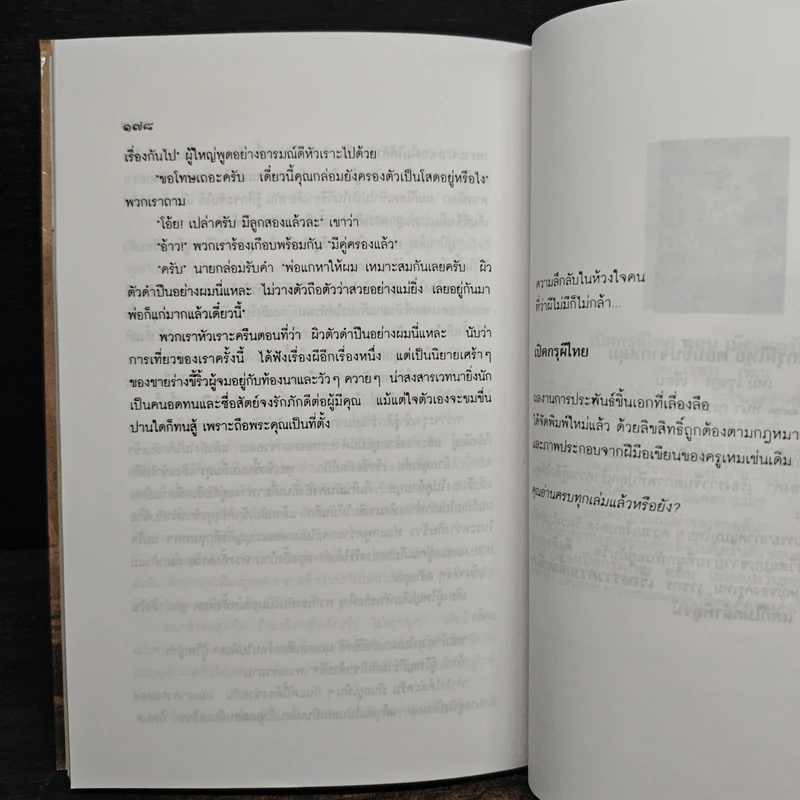 ๑๗๘
เรื่องกันไป" ผู้ใหญ่พูดอย่างอารมณ์ดีหัวเราะไปด้วย
"ขอโทษเถอะครับ เดี๋ยวนี้คุณกล่อมยังครองตัวเป็นโสดอยู่หรือไง"
พวกเราถาม
"โอ้ย! เปล่าครับ มีลูกสองแล้วละ" เขาว่า
"อ้าว!" พวกเราร้องเกือบพร้อมกัน "มีคู่ครองแล้ว"
"ครับ" นายกล่อมรับคำ "พ่อแกหาให้ผม เหมาะสมกันเลยครับ ผิว
ตัวดำปืนอย่างผมนี่แหละ ไม่วางตัวถือตัวว่าสวยอย่างแม่ยิ่ง เลยอยู่กันมา
พ่อก็แก่มากแล้วเดี๋ยวนี้"
พวกเราหัวเราะครืนตอนที่ว่า ผิวตัวดำปืนอย่างผมนี่แหละ นับว่า
การเที่ยวของเราครั้งนี้ ได้ฟังเรื่องผีอีกเรื่องหนึ่ง แต่เป็นนิยายเศร้าๆ
ของชายร่างขี้ริ้วผู้จมอยู่กับท้องนาและวัวๆ ควายๆ น่าสงสารเวทนายิ่งนัก
เป็นคนอดทนและซื่อสัตย์จงรักภักดีต่อผู้มีคุณ แม้แต่ใจตัวเองจะขมขื่น
ปานใดก็ทนสู้ เพราะถือพระคุณเป็นที่ตั้ง
ความลึกลับในห้วงใจคน
ที่ว่าผีไม่มีก็ไม่กล้า...
เปิดกรุผีไทย
ผลงานการประพันธ์ชิ้นเอกที่เลื่องลือ
ได้จัดพิมพ์ใหม่แล้ว ด้วยลิขสิทธิ์ถูกต้องตามกฎหมา
และภาพประกอบจากฝีมือเขียนของครูเหมเช่นเดิม
คุณอ่านครบทุกเล่มแล้วหรือยัง?